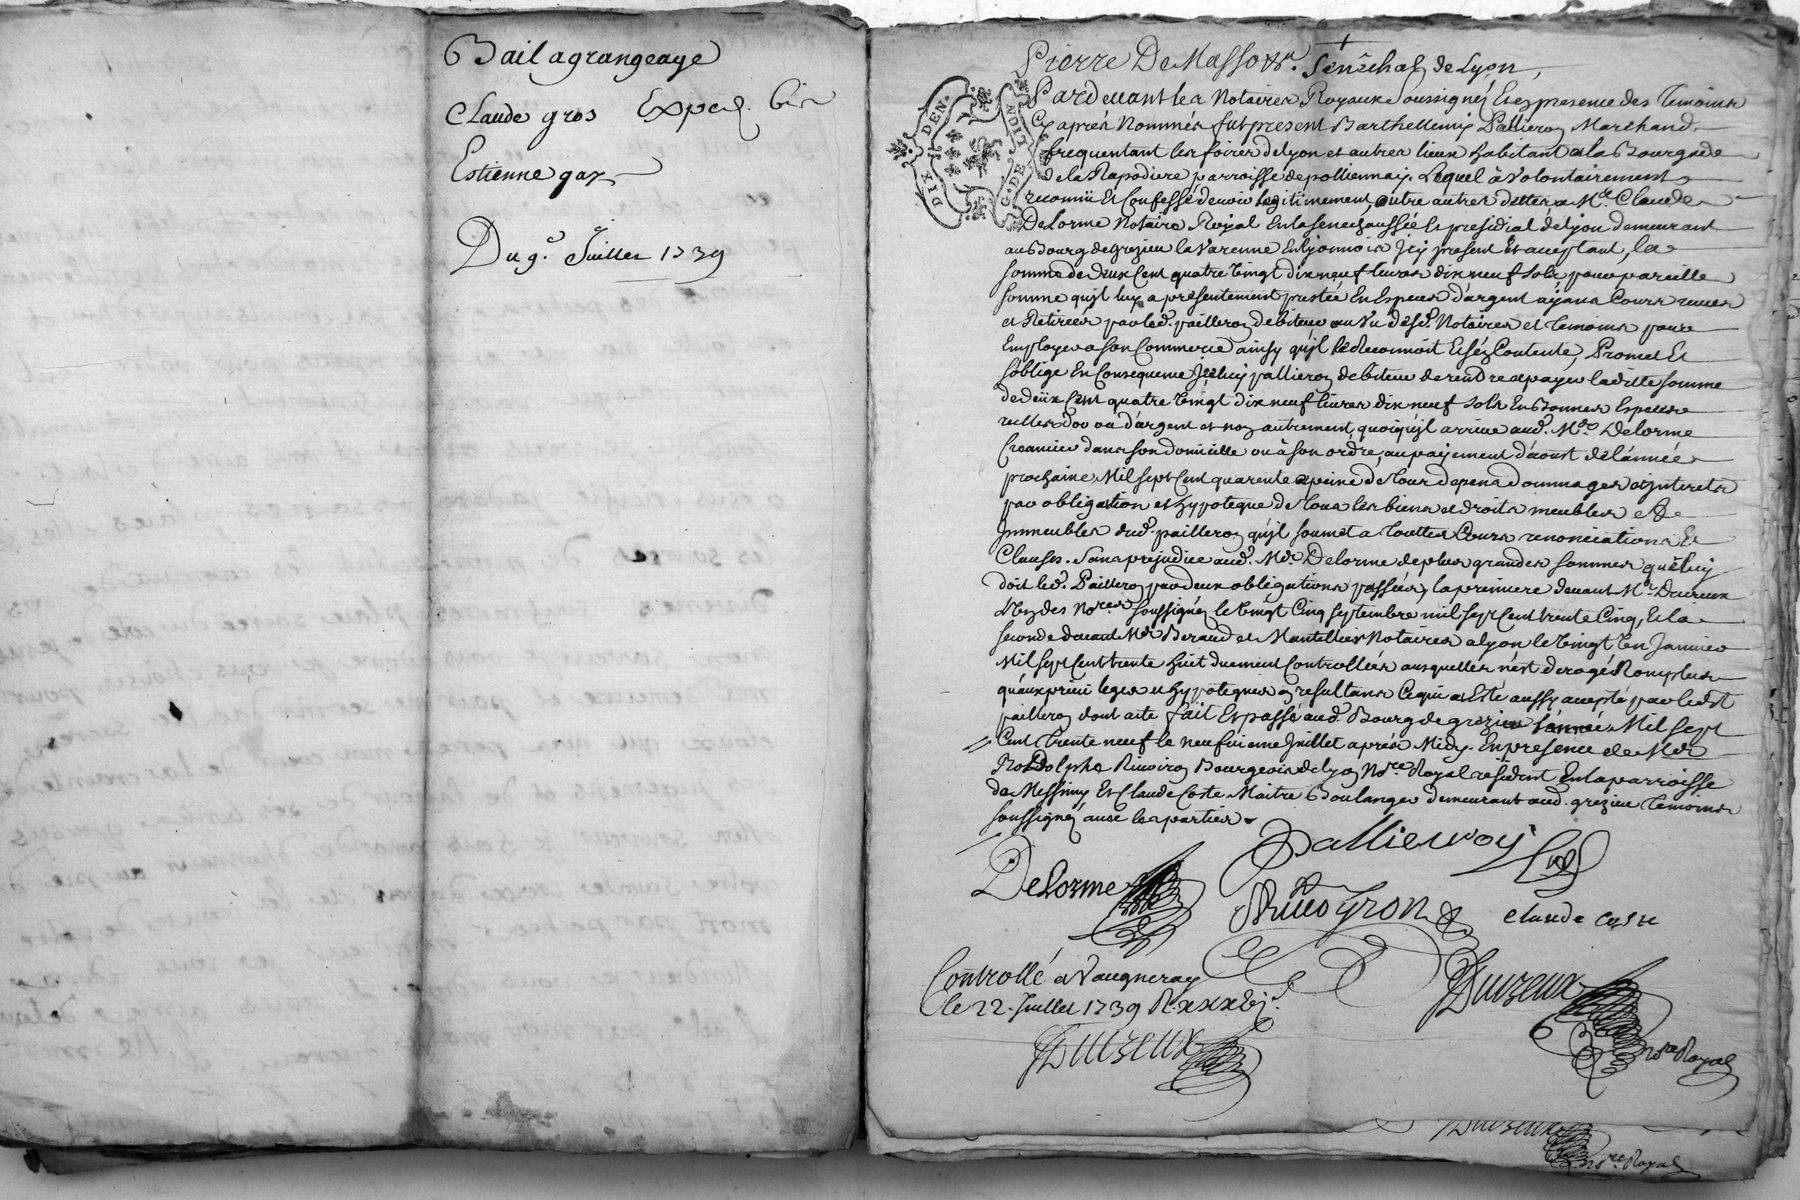 Bail agrangeage
Claude gros Exped. bis
Estienne gay
Du 9e. Juillet 1739
Pierre De Masso &r. Sénéchal de Lyon,
DIX DEN. G. DE LION
Pardevant les Notaires Royaux soussignés Et en presence des temoins
Cy aprés Nommés fut present Barthellemy Pallieroy Marchand
frequentant les foires de lyon et autres lieux habitant a la Bourgade
de la Rapodiere parroisse de pollionnay. Lequel à volontairement
reconnü Et Confessé devoir legitimement, outre autres dettes a Me. Claude
DeLorme Notaire Royal En la senechaussée Et presidial de lyon demeurant
au Bourg de grezieu la Varenne En lyonnois Icy present Et acceptant, la
somme de deux Cent quatre vingt dix neuf livres dix neuf sols pour pareille
somme qu'jl luy a presentement prestée En Especes d'argent ayans Cours reues
et Retirées par led. pailleroy debiteur au Vu desd. Notaires et temoins pour
Employer a son Commerce ainsy qu'jl le Reconnoit Et s'en Contente, Promet Et
s'oblige En Consequence Jceluy pallieroy debiteur de rendre et payer laditte somme
de deüx Cent quatre vingt dix neuf livres dix neuf sols En Bonnes Especes
reelles d'or ou d'argent et non autrement, quoiqu'jl arrive aud. Me. Delorme
Creancier dans son domicille ou à son ordre, au payement d'aoust de l'année
prochaine Mil sept Cent quarente a peine de tous depens dommages et Interets
par obligation et hypoteque de tous les biens et droits meubles et
Immeubles dud. pailleroy qu'jl soumet a touttes Cours renonciations Et
Clauses. Sans prejudice aud. Me. DeLorme de plus grandes sommes que luy
doit led. Pailleroy par deux obligations passées, la premiere devant Me. Duvieux
L'un des Nores soussignés le vingt Cinq septembre mil sept Cent trente Cinq, Et la
seconde devant Mes Beraud et Mantellier Notaires a lyon le vingt un Janvier
Mil sept Cent trente huit duement Controllées ausquelles n'est derogé Non plus
qu'aux privileges et hypoteques en resultans Ce qui a Eté aussy accepté par ledit
pailleroy dont acte fait Et passé aud. Bourg de grezieu l'année Mil sept
Cent trente neuf le neufvieme Juillet aprés Midy En presence de Mes
Rodolphe Rivoiron Bourgeois de lyon Nore Royal résident En la parroisse
de Messimy Et Claude Coste Maitre Boulanger demeurant aud. grezieu temoins
soussignés avec les parties.
DeLorme Pallieroy
Rivoyron Claude Coste
Controllé a Vaugneray
le 22. Juillet 1739
Duvieux Duvieux
Nore Royal
Duvieux
Nore Royal